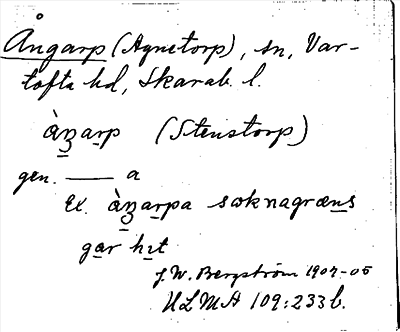 Ångarp (Agnetorp), sn, Var-
tofta hd, Skarab. l.
àn̠arp (Stenstorp)
gen. —— a
Ex. àn̠arpa soknagræns
gar hıt
J. W. Bergström 1904-05
ULMA 109:233b.